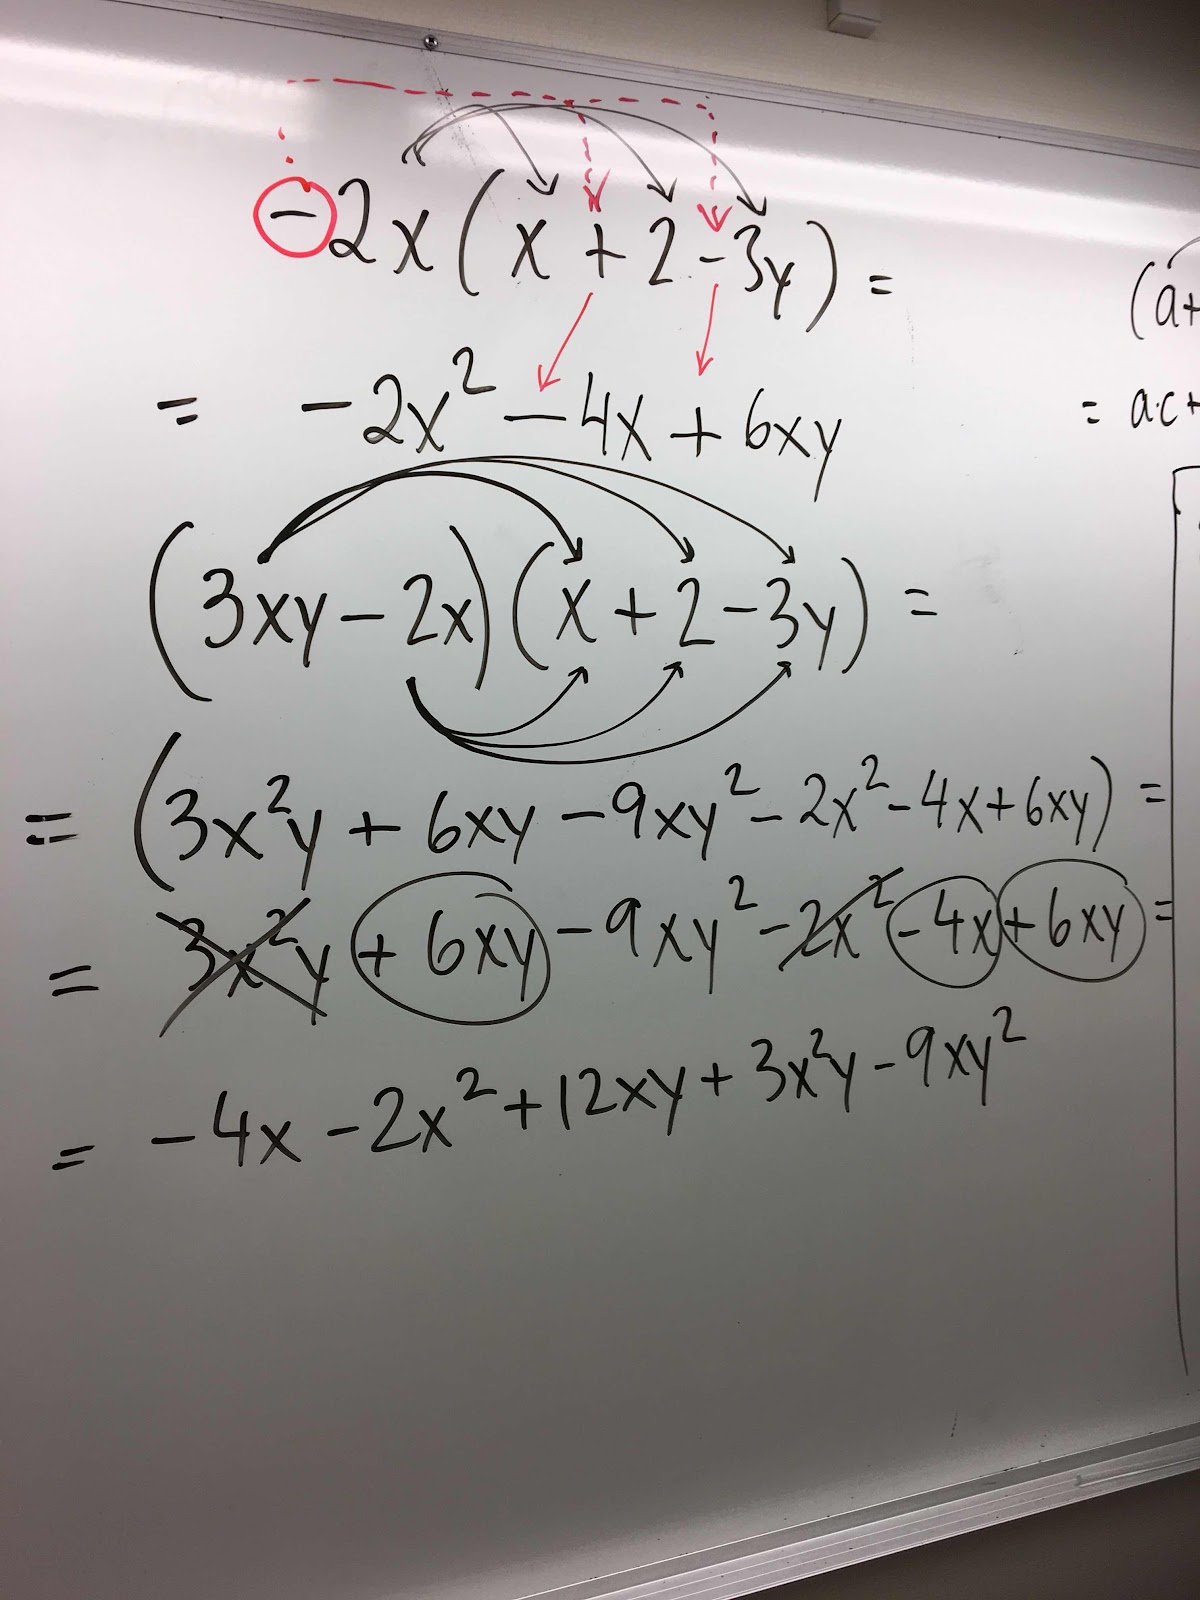 -2x(x + 2 - 3y) =
= -2x² - 4x + 6xy
(3xy - 2x)(x + 2 - 3y) =
= (3x²y + 6xy - 9xy² - 2x² - 4x + 6xy) =
= 3x²y + 6xy - 9xy² - 2x² - 4x + 6xy =
= -4x - 2x² + 12xy + 3x²y - 9xy²
(a+
= a·c+